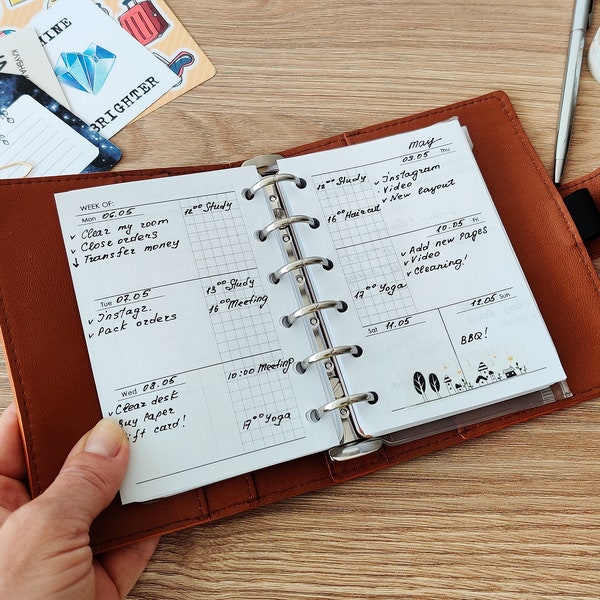 MINE
BRIGHTER
КЛУБНА
WEEK OF:
Mon 06.05
v Clear my room
v Close orders
↓ Transfer money
12⁰⁰ Study
Tue 07.05
v Instagr.
v Pack orders
13⁰⁰ Study
16⁰⁰ Meeting
Wed 08.05
v Clear desk
Buy Paper
ift card!
10:00 Meeting
17⁰⁰ Yoga
may
09.05 Thu
12⁰⁰ Study
16⁰⁰ Haircut
v Instagram
v Video
v New layout
10.05 Fri
v Add new pages
v Video
v Cleaning!
17⁰⁰ Yoga
Sat 11.05
12.05 Sun
BBQ!